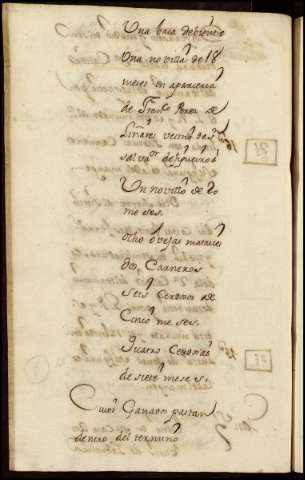 Una baca de vientre
Una novilla de 18
meses en aparceria
de Franco Perez de
Linares vecino de Sn
Salvador de
Un novillo de 20
meses.
Ocho ovejas matrices
dos Carneros
Seis Cerdones de
Cinco meses.
Quatro Cerdones
de siete meses.
Cuios Ganados pastan
dentro del termino